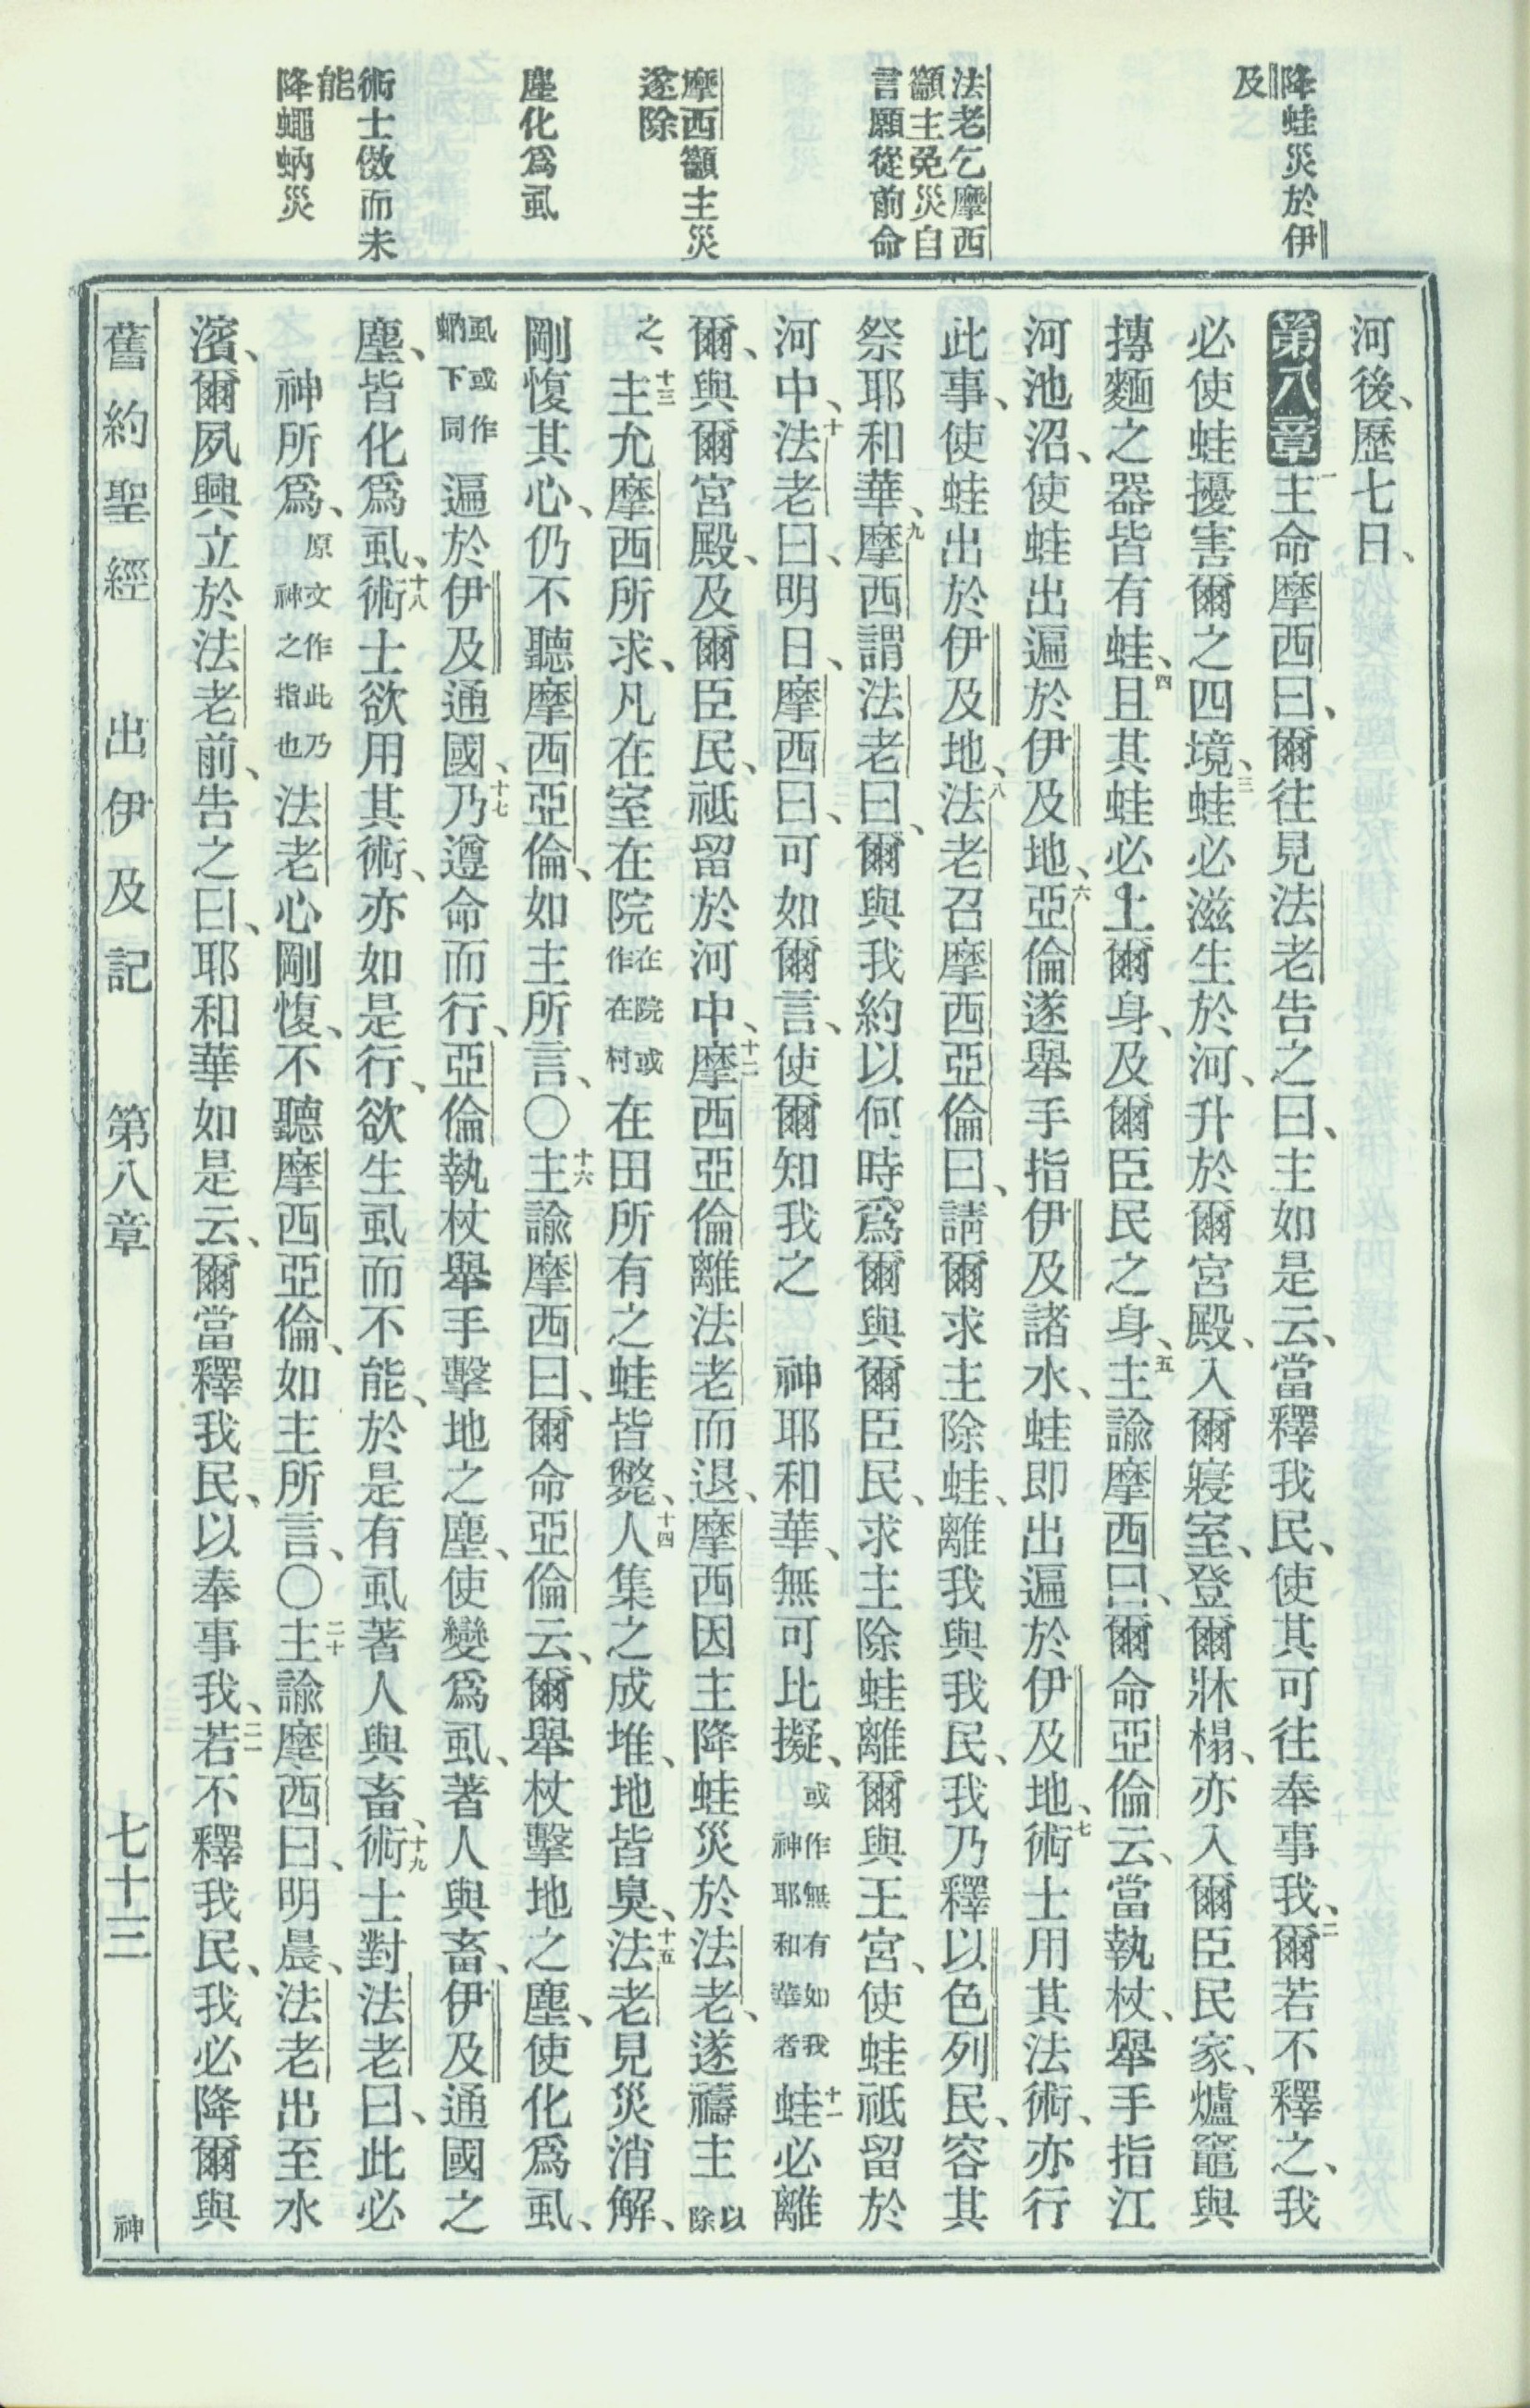 降蛙災於伊
及
法老乞摩西
籲主免災自
言願從前命
摩西籲主災
遂除
塵化爲虱
術士傚而未
能
降蠅蚋災
河後、歷七日、
第八章一主命摩西曰、爾往見法老告之曰、主如是云、當釋我民、使其可往奉事我、二爾若不釋之、我
必使蛙擾害爾之四境、三蛙必滋生於河、升於爾宮殿、入爾寢室、登爾牀榻、亦入爾臣民家、爐竈與
摶麵之器皆有蛙、四且其蛙必上爾身、及爾臣民之身、五主諭摩西曰、爾命亞倫云、當執杖、舉手指江
河池沼、使蛙出遍於伊及地、六亞倫遂舉手指伊及諸水、蛙即出遍於伊及地、七術士用其法術、亦行
此事、使蛙出於伊及地、八法老召摩西亞倫曰、請爾求主除蛙、離我與我民、我乃釋以色列民、容其
祭耶和華、九摩西謂法老曰、爾與我約以何時爲爾與爾臣民、求主除蛙離爾與王宮、使蛙祇留於
河中、十法老曰、明日、摩西曰、可如爾言、使爾知我之 神耶和華、無可比擬、或作無有如我神耶和華者十一蛙必離
爾、與爾宮殿、及爾臣民、祇留於河中、十二摩西亞倫離法老而退、摩西因主降蛙災於法老、遂禱主以除
之、十三主允摩西所求、凡在室在院在院或作在村在田所有之蛙皆斃、十四人集之成堆、地皆臭、十五法老見災消解、
剛愎其心、仍不聽摩西亞倫、如主所言、○十六主諭摩西曰、爾命亞倫云、爾舉杖擊地之塵、使化爲虱、
虱或作蚋下同遍於伊及通國、十七乃遵命而行、亞倫執杖舉手擊地之塵、使變爲虱、著人與畜、伊及通國之
塵、皆化爲虱、十八術士欲用其術、亦如是行、欲生虱而不能、於是有虱著人與畜、十九術士對法老曰、此必
神所爲、原文作此乃神之指也法老心剛愎、不聽摩西亞倫、如主所言、○二十主諭摩西曰、明晨、法老出至水
濱、爾夙興立於法老前、告之曰、耶和華如是云、爾當釋我民、以奉事我、二一若不釋我民、我必降爾與
舊約聖經 出伊及記 第八章 七十三 神